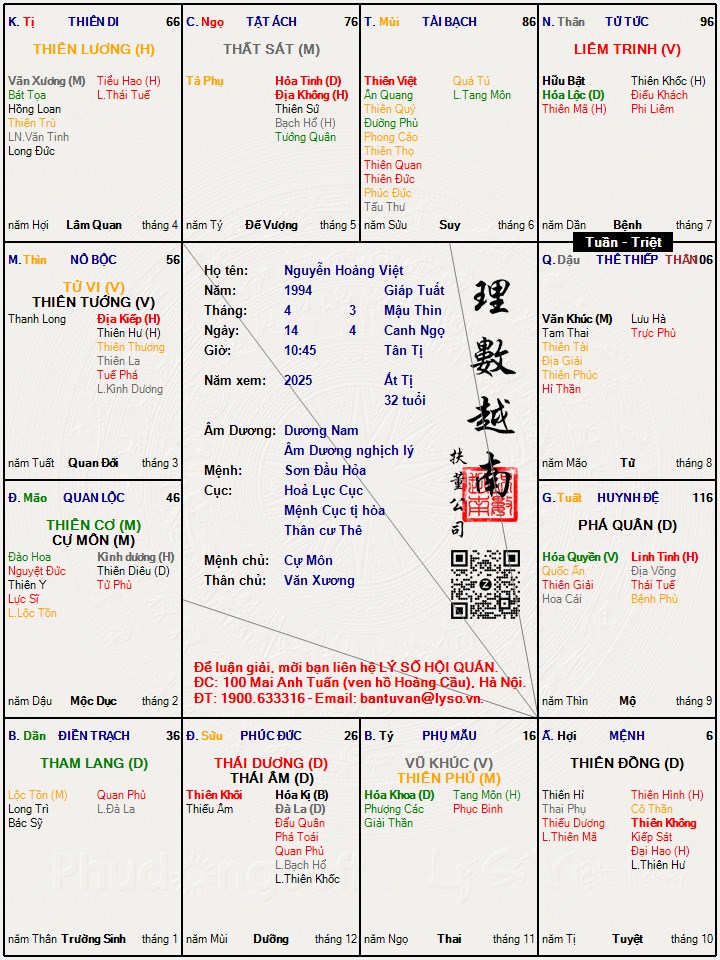 K. Tị THIÊN DI 66
THIÊN LƯƠNG (H)
Văn Xương (M) Tiểu Hao (H)
Bát Tọa L.Thái Tuế
Hồng Loan
Thiên Trù
LN.Văn Tinh
Long Đức
năm Hợi Lâm Quan tháng 4
C. Ngọ TẬT ÁCH 76
THẤT SÁT (M)
Tả Phụ Hỏa Tinh (D)
Địa Không (H)
Thiên Sứ
Bạch Hổ (H)
Tướng Quân
năm Tý Đế Vượng tháng 5
T. Mùi TÀI BẠCH 86
Thiên Việt Quả Tú
Ân Quang L.Tang Môn
Thiên Quý
Đường Phù
Phong Cáo
Thiên Thọ
Thiên Quan
Thiên Đức
Phúc Đức
Tấu Thư
năm Sửu Suy tháng 6
N. Thân TỬ TỨC 96
LIÊM TRINH (V)
Hữu Bật Thiên Khốc (H)
Hóa Lộc (D) Điếu Khách
Thiên Mã (H) Phi Liêm
năm Dần Bệnh tháng 7
Tuần - Triệt
M. Thìn NÔ BỘC 56
TỬ VI (V)
THIÊN TƯỚNG (V)
Thanh Long Địa Kiếp (H)
Thiên Hư (H)
Thiên Thương
Thiên La
Tuế Phá
L.Kình Dương
năm Tuất Quan Đới tháng 3
Họ tên: Nguyễn Hoàng Việt
Năm: 1994 Giáp Tuất
Tháng: 4 3 Mậu Thìn
Ngày: 14 4 Canh Ngọ
Giờ: 10:45 Tân Tị
Năm xem: 2025 Ất Tị
32 tuổi
Âm Dương: Dương Nam
Âm Dương nghịch lý
Mệnh: Sơn Đầu Hỏa
Cục: Hoả Lục Cục
Mệnh Cục tị hòa
Thân cư Thê
Mệnh chủ: Cự Môn
Thân chủ: Văn Xương
理數越南
扶董公司
Để luận giải, mời bạn liên hệ LÝ SỐ HỘI QUÁN.
ĐC: 100 Mai Anh Tuấn (ven hồ Hoàng Cầu), Hà Nội.
ĐT: 1900.633316 - Email: bantuvan@lyso.vn.
Q. Dậu THÊ THIẾP THÂN 106
Văn Khúc (M) Lưu Hà
Tam Thai Trực Phù
Thiên Tài
Địa Giải
Thiên Phúc
Hỉ Thần
năm Mão Tử tháng 8
Đ. Mão QUAN LỘC 46
THIÊN CƠ (M)
CỰ MÔN (M)
Đào Hoa Kình dương (H)
Nguyệt Đức Thiên Diêu (D)
Thiên Y Tử Phù
Lực Sĩ
L.Lộc Tồn
năm Dậu Mộc Dục tháng 2
G. Tuất HUYNH ĐỆ 116
PHÁ QUÂN (D)
Hóa Quyền (V) Linh Tinh (H)
Quốc Ấn Địa Võng
Thiên Giải Thái Tuế
Hoa Cái Bệnh Phù
năm Thìn Mộ tháng 9
B. Dần ĐIỀN TRẠCH 36
THAM LANG (D)
Lộc Tồn (M) Quan Phù
Long Trì L.Đà La
Bác Sỹ
năm Thân Trường Sinh tháng 1
Đ. Sửu PHÚC ĐỨC 26
THÁI DƯƠNG (D)
THÁI ÂM (D)
Thiên Khôi Hóa Kị (B)
Thiếu Âm Đà La (D)
Đẩu Quân
Phá Toái
Quan Phủ
L.Bạch Hổ
L.Thiên Khốc
năm Mùi Dưỡng tháng 12
B. Tý PHỤ MẪU 16
VŨ KHÚC (V)
THIÊN PHỦ (M)
Hóa Khoa (D) Tang Môn (H)
Phượng Các Phục Binh
Giải Thần
năm Ngọ Thai tháng 11
Ấ. Hợi MỆNH 6
THIÊN ĐỒNG (D)
Thiên Hỉ Thiên Hình (H)
Thai Phụ Cô Thần
Thiếu Dương Thiên Không
L.Thiên Mã Kiếp Sát
Đại Hao (H)
L.Thiên Hư
năm Tị Tuyệt tháng 10